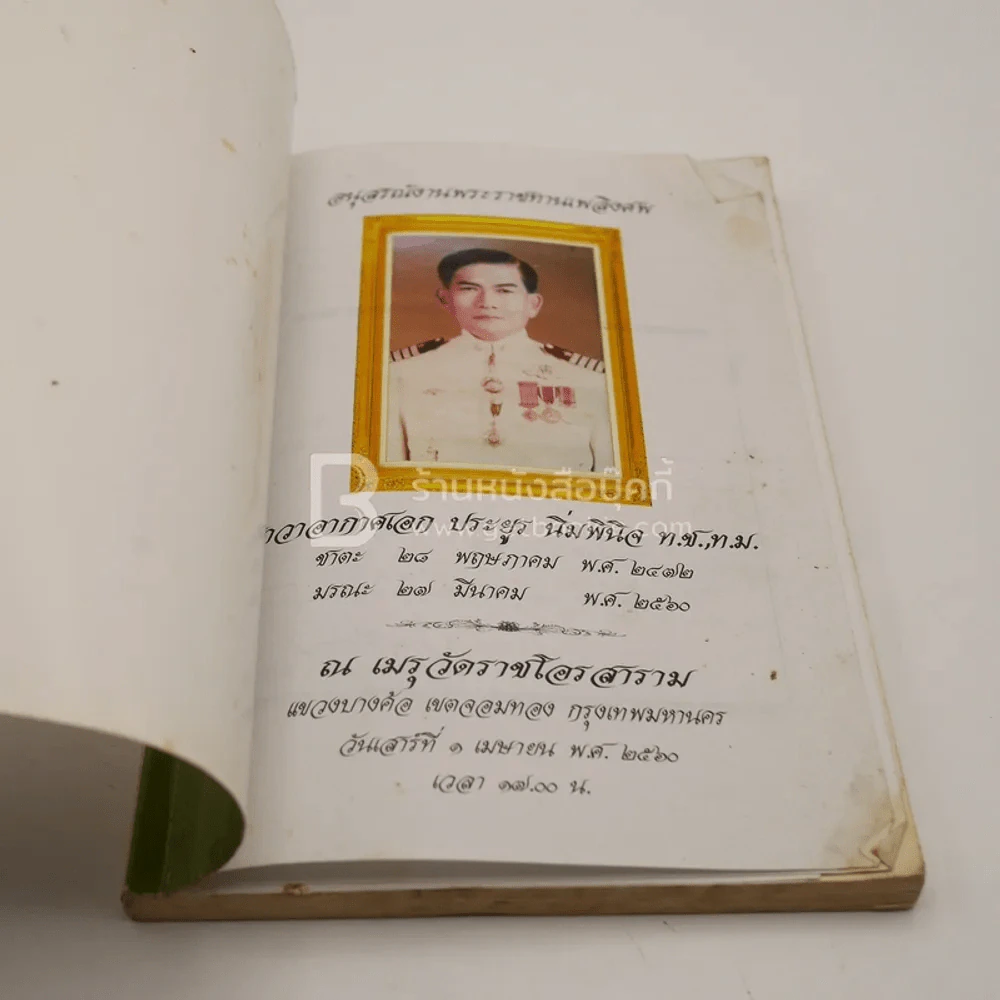 อนุสรณ์งานพระราชทานเพลิงศพ
ร้านหนังสือบุ๊คกี้
นาวาอากาศเอก ประยูร นิ่มพินิจ ท.ช.,ท.ม.
ชาตะ ๒๘ พฤษภาคม พ.ศ. ๒๔๗๒
มรณะ ๒๗ มีนาคม พ.ศ. ๒๕๖๐
ณ เมรุวัดราชโอรสาราม
แขวงบางค้อ เขตจอมทอง กรุงเทพมหานคร
วันเสาร์ที่ ๑ เมษายน พ.ศ. ๒๕๖๐
เวลา ๑๗.๐๐ น.